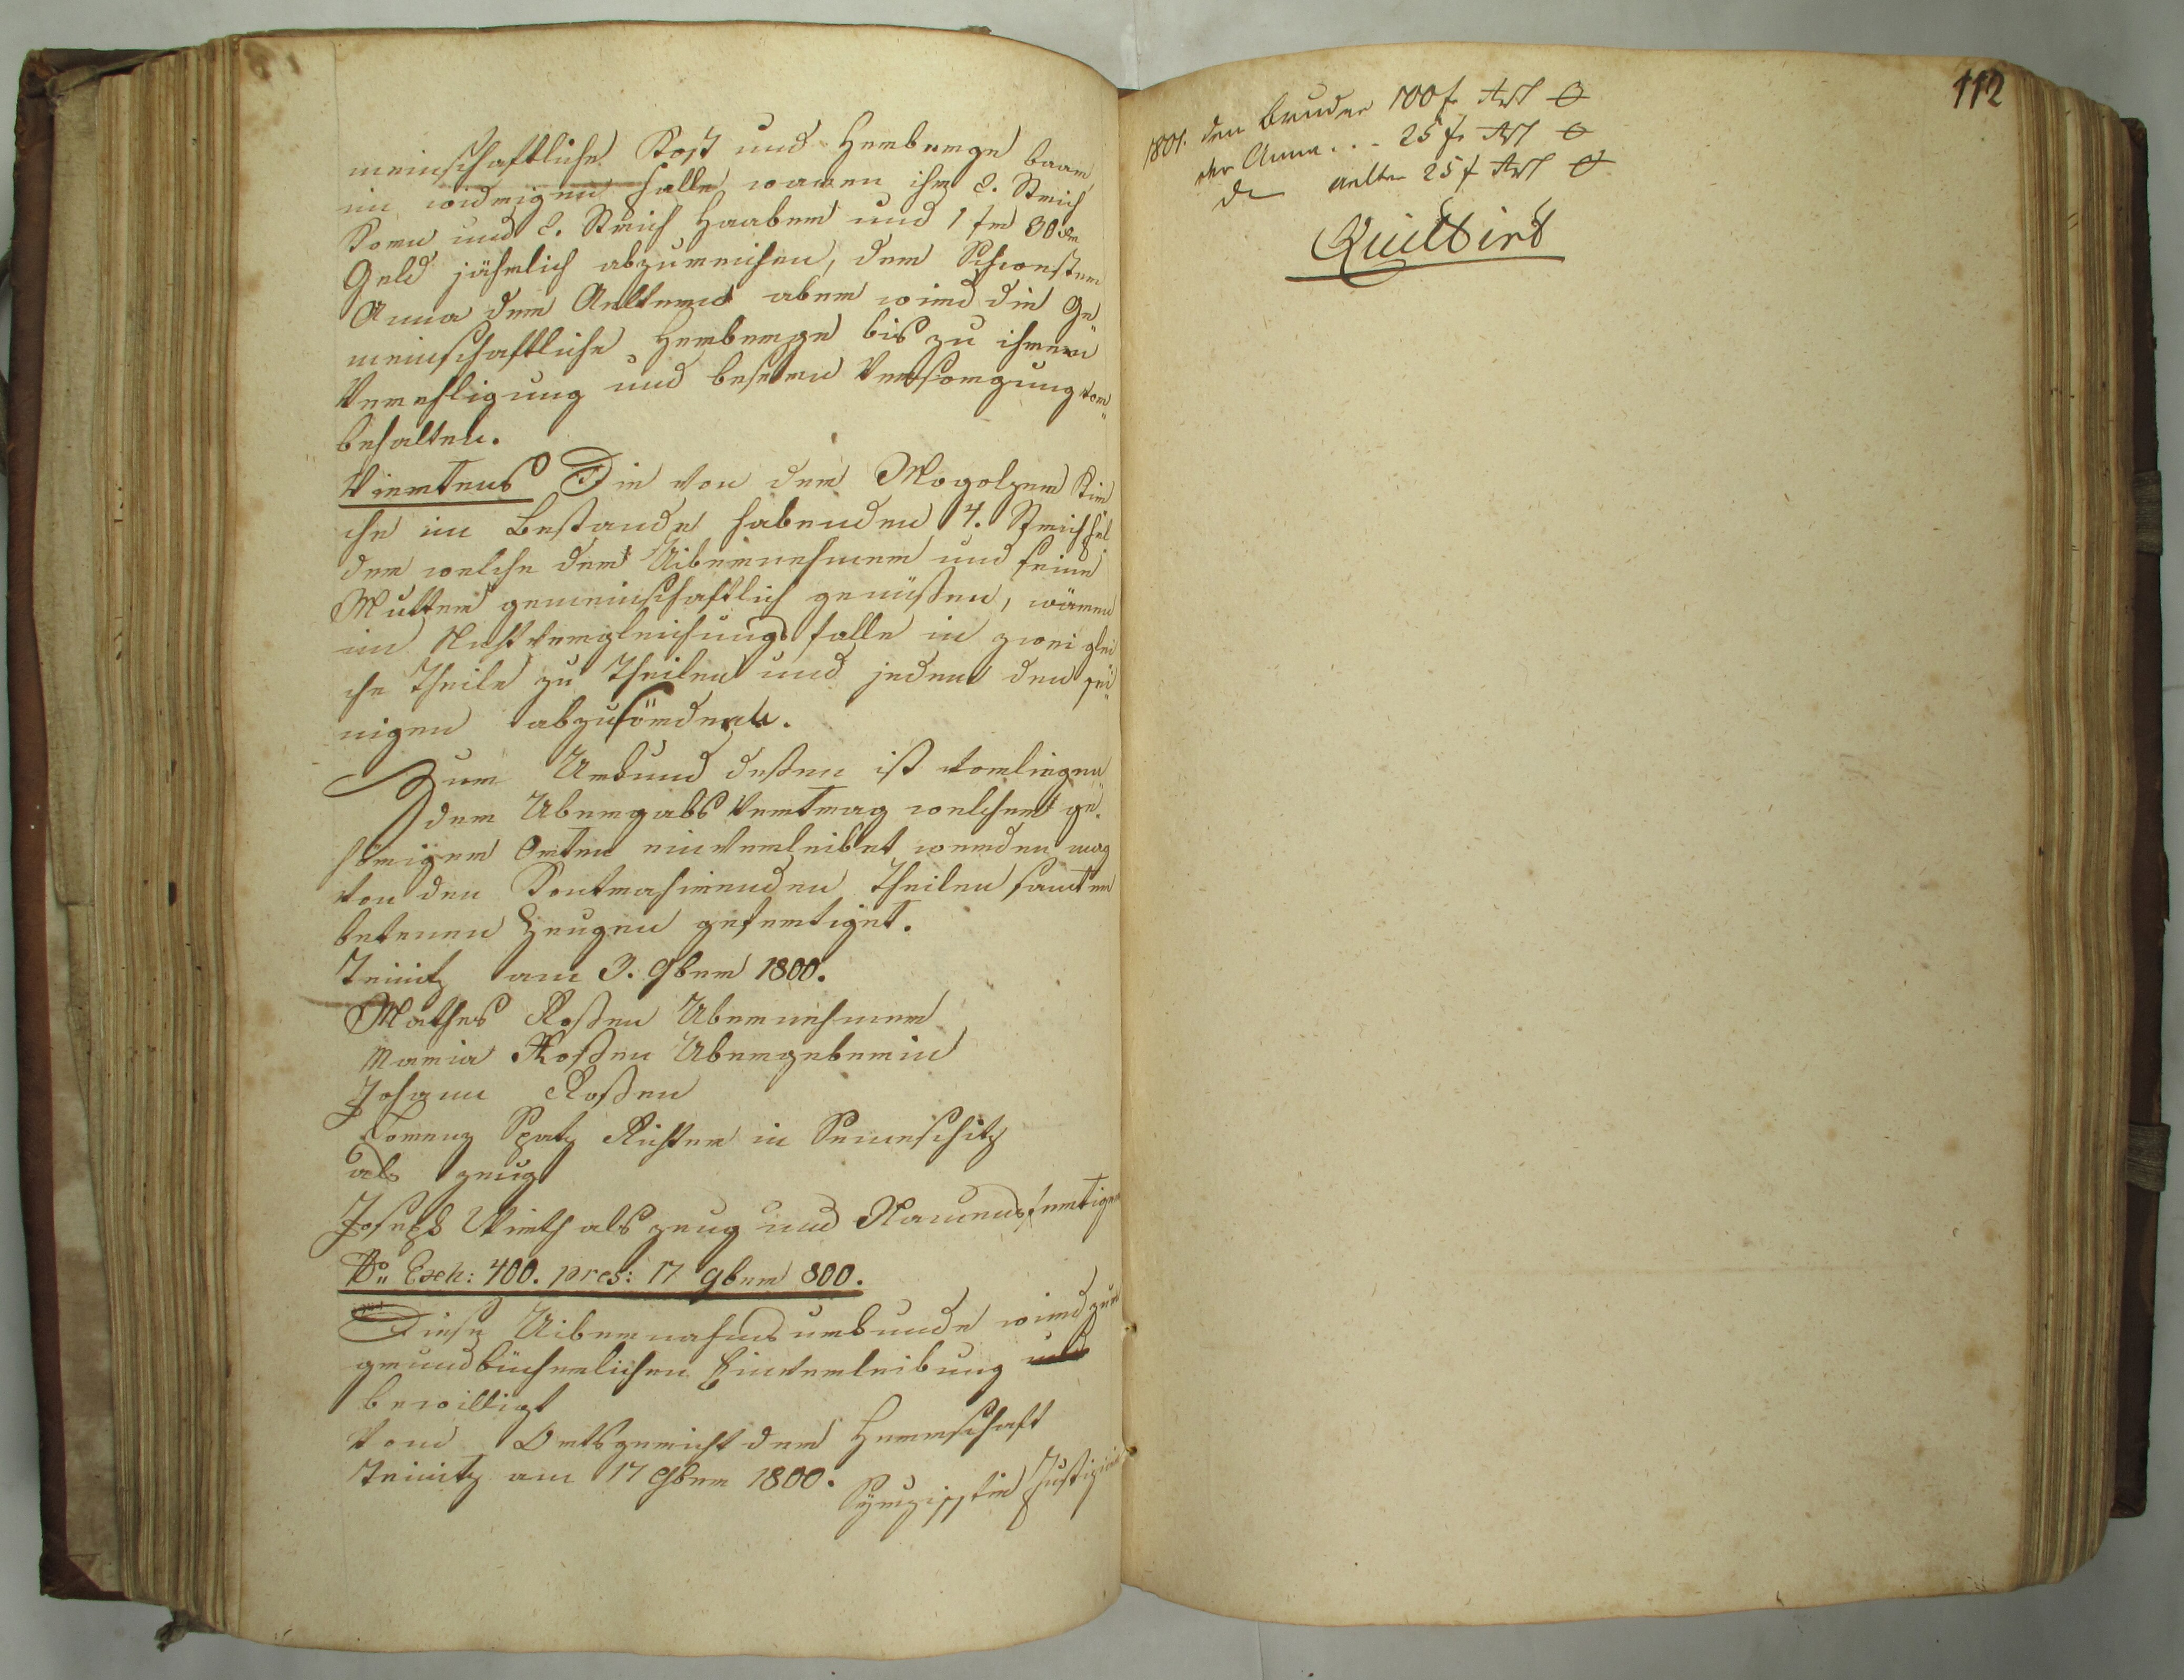 meinschaftliche Kost und Herberge baar
im widrigen Falle waren ihr 2. Strich
Korn und 2. Strich Haaber und 1 fr 30 xr
Geld jährlich abzureichen, der Schwester
Anna der Aeltern aber wird die Ge„
meinschaftliche Herberge bis zu ihrer
Verehligung und besern Versorgung vor„
behalten.
Viertens Die von der Mogolzer Kir
che im Bestande habenden 4. Strich Fel
der welche der Uibernehmer und seine
Mutter gemeinschaftlich genüßen, wären
im Nichtvergleichungsfalle in zwei glei
che Theile zu Theilen und jeden den sei„
nigen abzusöndern.
Zur Urkund deßen ist vorliegen
der Übergabs Vertrag welcher ge„
hörigen Orten einverleibet werden mag
von den Kontrahirenden Theilen samt er
betenen Zeugen gefertiget.
Teinitz am 3. 9ber 1800.
Mathes Roßen Übernehmer
Maria Roßen Übergeberin
Johann Roßen
Lorenz Spatz Richter in Semeschitz
als Zeug
Joseph Wirth als Zeug und Namensfertiger
No„ Exh: 400. pres: 17 9ber 800.
Diese Uibernahmsurkunde wird zur
grundbücherlichen Einverleibung
bewilligt
Vom Ortsgericht der Herrschaft
Teinitz am 17 9ber 1800.
Justiziär
112
1801. den Bruder 100 f
der Anna . . . 25 f
der aelter 25 f
Quittirt